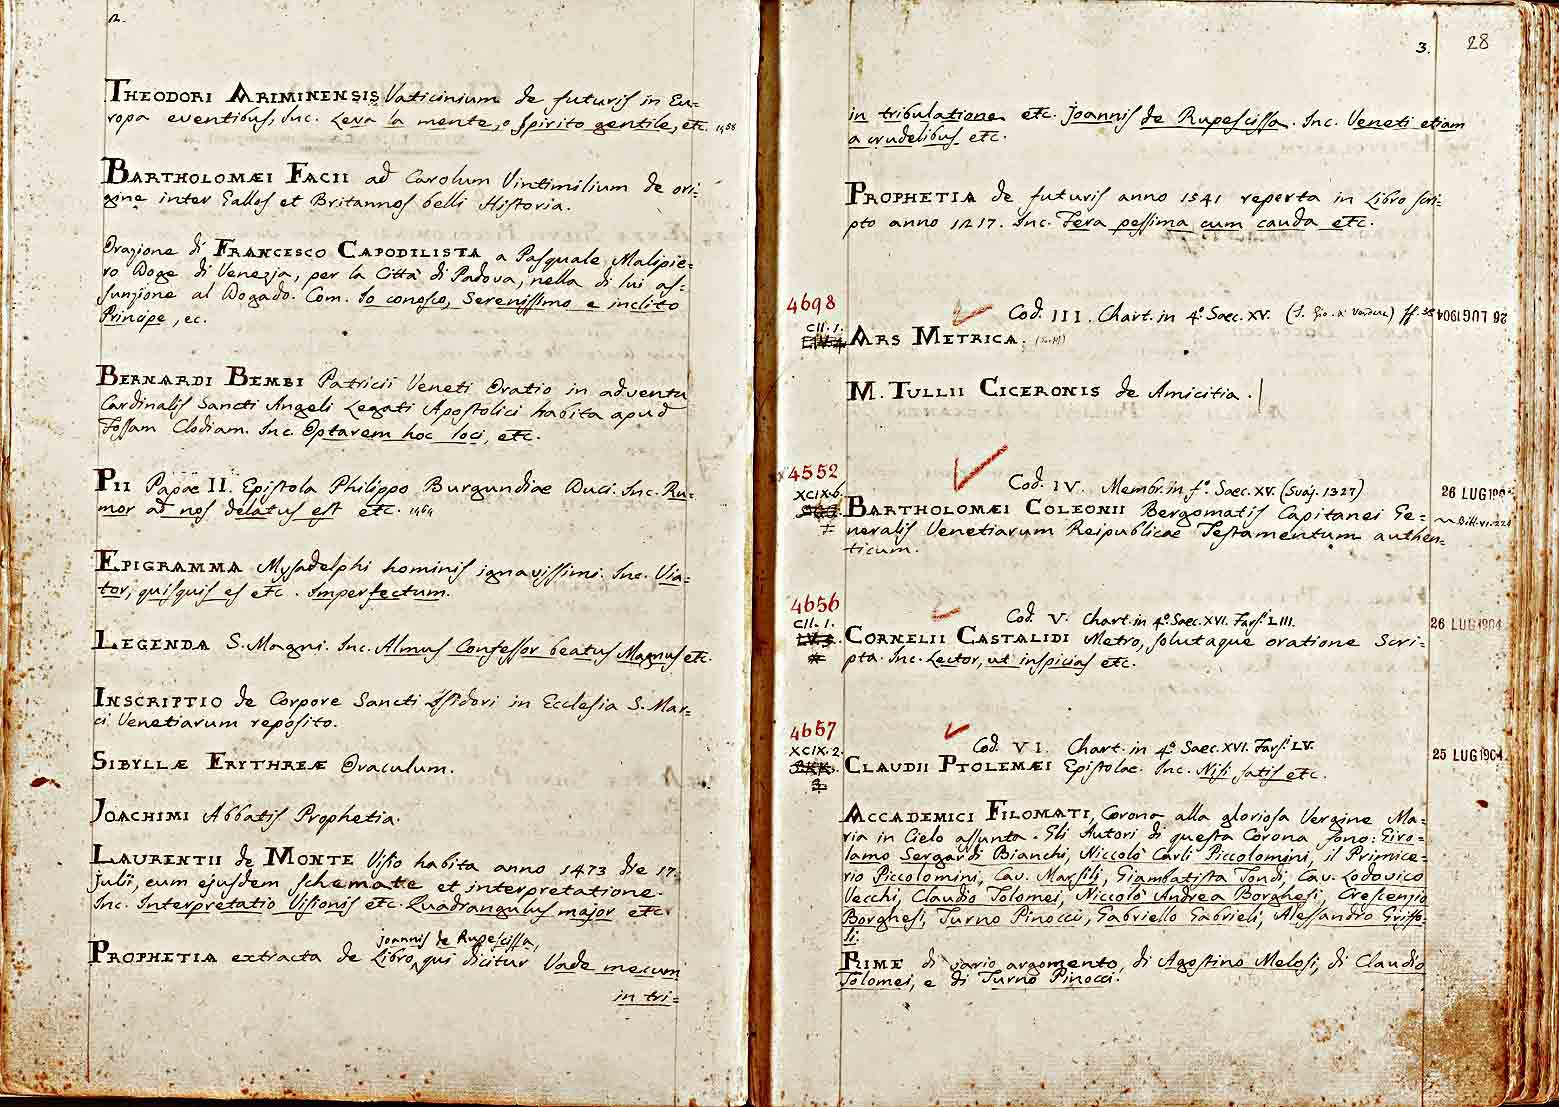 2.
THEODORI ARIMINENSIS Vaticinium de futuris in Eu=
ropa eventibus, Inc. Leva la mente, o spirito gentile, etc. 1468
BARTHOLOMÆI FACII ad Carolum Vintimilium de ori=
gine inter Gallos et Britannos belli Historia.
Orazione di FRANCESCO CAPODILISTA a Pasquale Malipie=
ro Doge di Venezia, per la Città di Padova, nella di lui as=
sunzione al Dogado. Com. Io conosco, Serenissimo e inclito
Principe, ec.
BERNARDI BEMBI Patricii Veneti Oratio in adventu
Cardinalis Sancti Angeli Legati Apostolici habita apud
Fossam Clodiam. Inc. Optarem hoc loci, etc.
PII Papae II. Epistola Philippo Burgundiae Duci. Inc. Ru=
mor ad nos delatus est etc. 1464
EPIGRAMMA Mysadelphi hominis ignavissimi. Inc. Via=
tor, quisquis es etc. Imperfectum.
LEGENDA S. Magni. Inc. Almus Confessor beatus Magnus etc.
INSCRIPTIO de Corpore Sancti Isidori in Ecclesia S. Mar=
ci Venetiarum reposito.
SIBYLLÆ ERYTHREÆ Oraculum.
JOACHIMI Abbatis Prophetia.
LAURENTII de MONTE Visio habita anno 1473 die 17.
julii, cum ejusdem schemate et interpretatione.
Inc. Interpretatio Visionis etc. Quadrangulus major etc.
joannis de Rupescissa,
PROPHETIA extracta de Libro, qui dicitur Vade mecum
in tri=
3. 28
in tribulatione etc. joannis de Rupescissa. Inc. Veneti etiam
a crudelibus etc.
PROPHETIA de futuris anno 1541 reperta in Libro scri=
pto anno 1217. Inc. Fera pessima cum cauda etc.
4698 Cod. III. Chart. in 4º Saec. XV. (S. Gio. in Verdara) ff. 38 26 LUG 1904
CII. 1.
ARS METRICA.
M. TULLII CICERONIS de Amicitia.
4552 Cod. IV. Membr. in fº. Saec. XV. (Svaj. 1327) 26 LUG 190
XCIX. 6.
BARTHOLOMÆI COLEONII Bergomatis Capitanei Ge=
neralis Venetiarum Reipublicae Testamentum authen=
ticum.
4656 Cod. V. Chart. in 4º Saec. XVI. Fars. LIII. 26 LUG 1904
CII. 1.
CORNELII CASTALIDI Metro, solutaque oratione Scri=
pta. Inc. Lector, ut inspicias etc.
4657 Cod. VI. Chart. in 4º Saec. XVI. Fars. LV. 25 LUG 1904
XCIX. 2.
CLAUDII PTOLEMÆI Epistolae. Inc. Nisi satis etc.
ACCADEMICI FILOMATI, Corona alla gloriosa Vergine Ma=
ria in Cielo assunta. Gli Autori di questa Corona sono: Giro=
lamo Sergardi Bianchi, Niccolò Carli Piccolomini, il Primice=
rio Piccolomini, Cav. Marsilj, Giambatista Tondi, Cav. Lodovico
Vecchi, Claudio Tolomei, Niccolò Andrea Borghesi, Crescenzio
Borghesi, Turno Pinocci, Gabriello Gabrieli, Alessandro Griffo=
li.
RIME di vario argomento, di Agostino Melosi, di Claudio
Tolomei, e di Turno Pinocci.